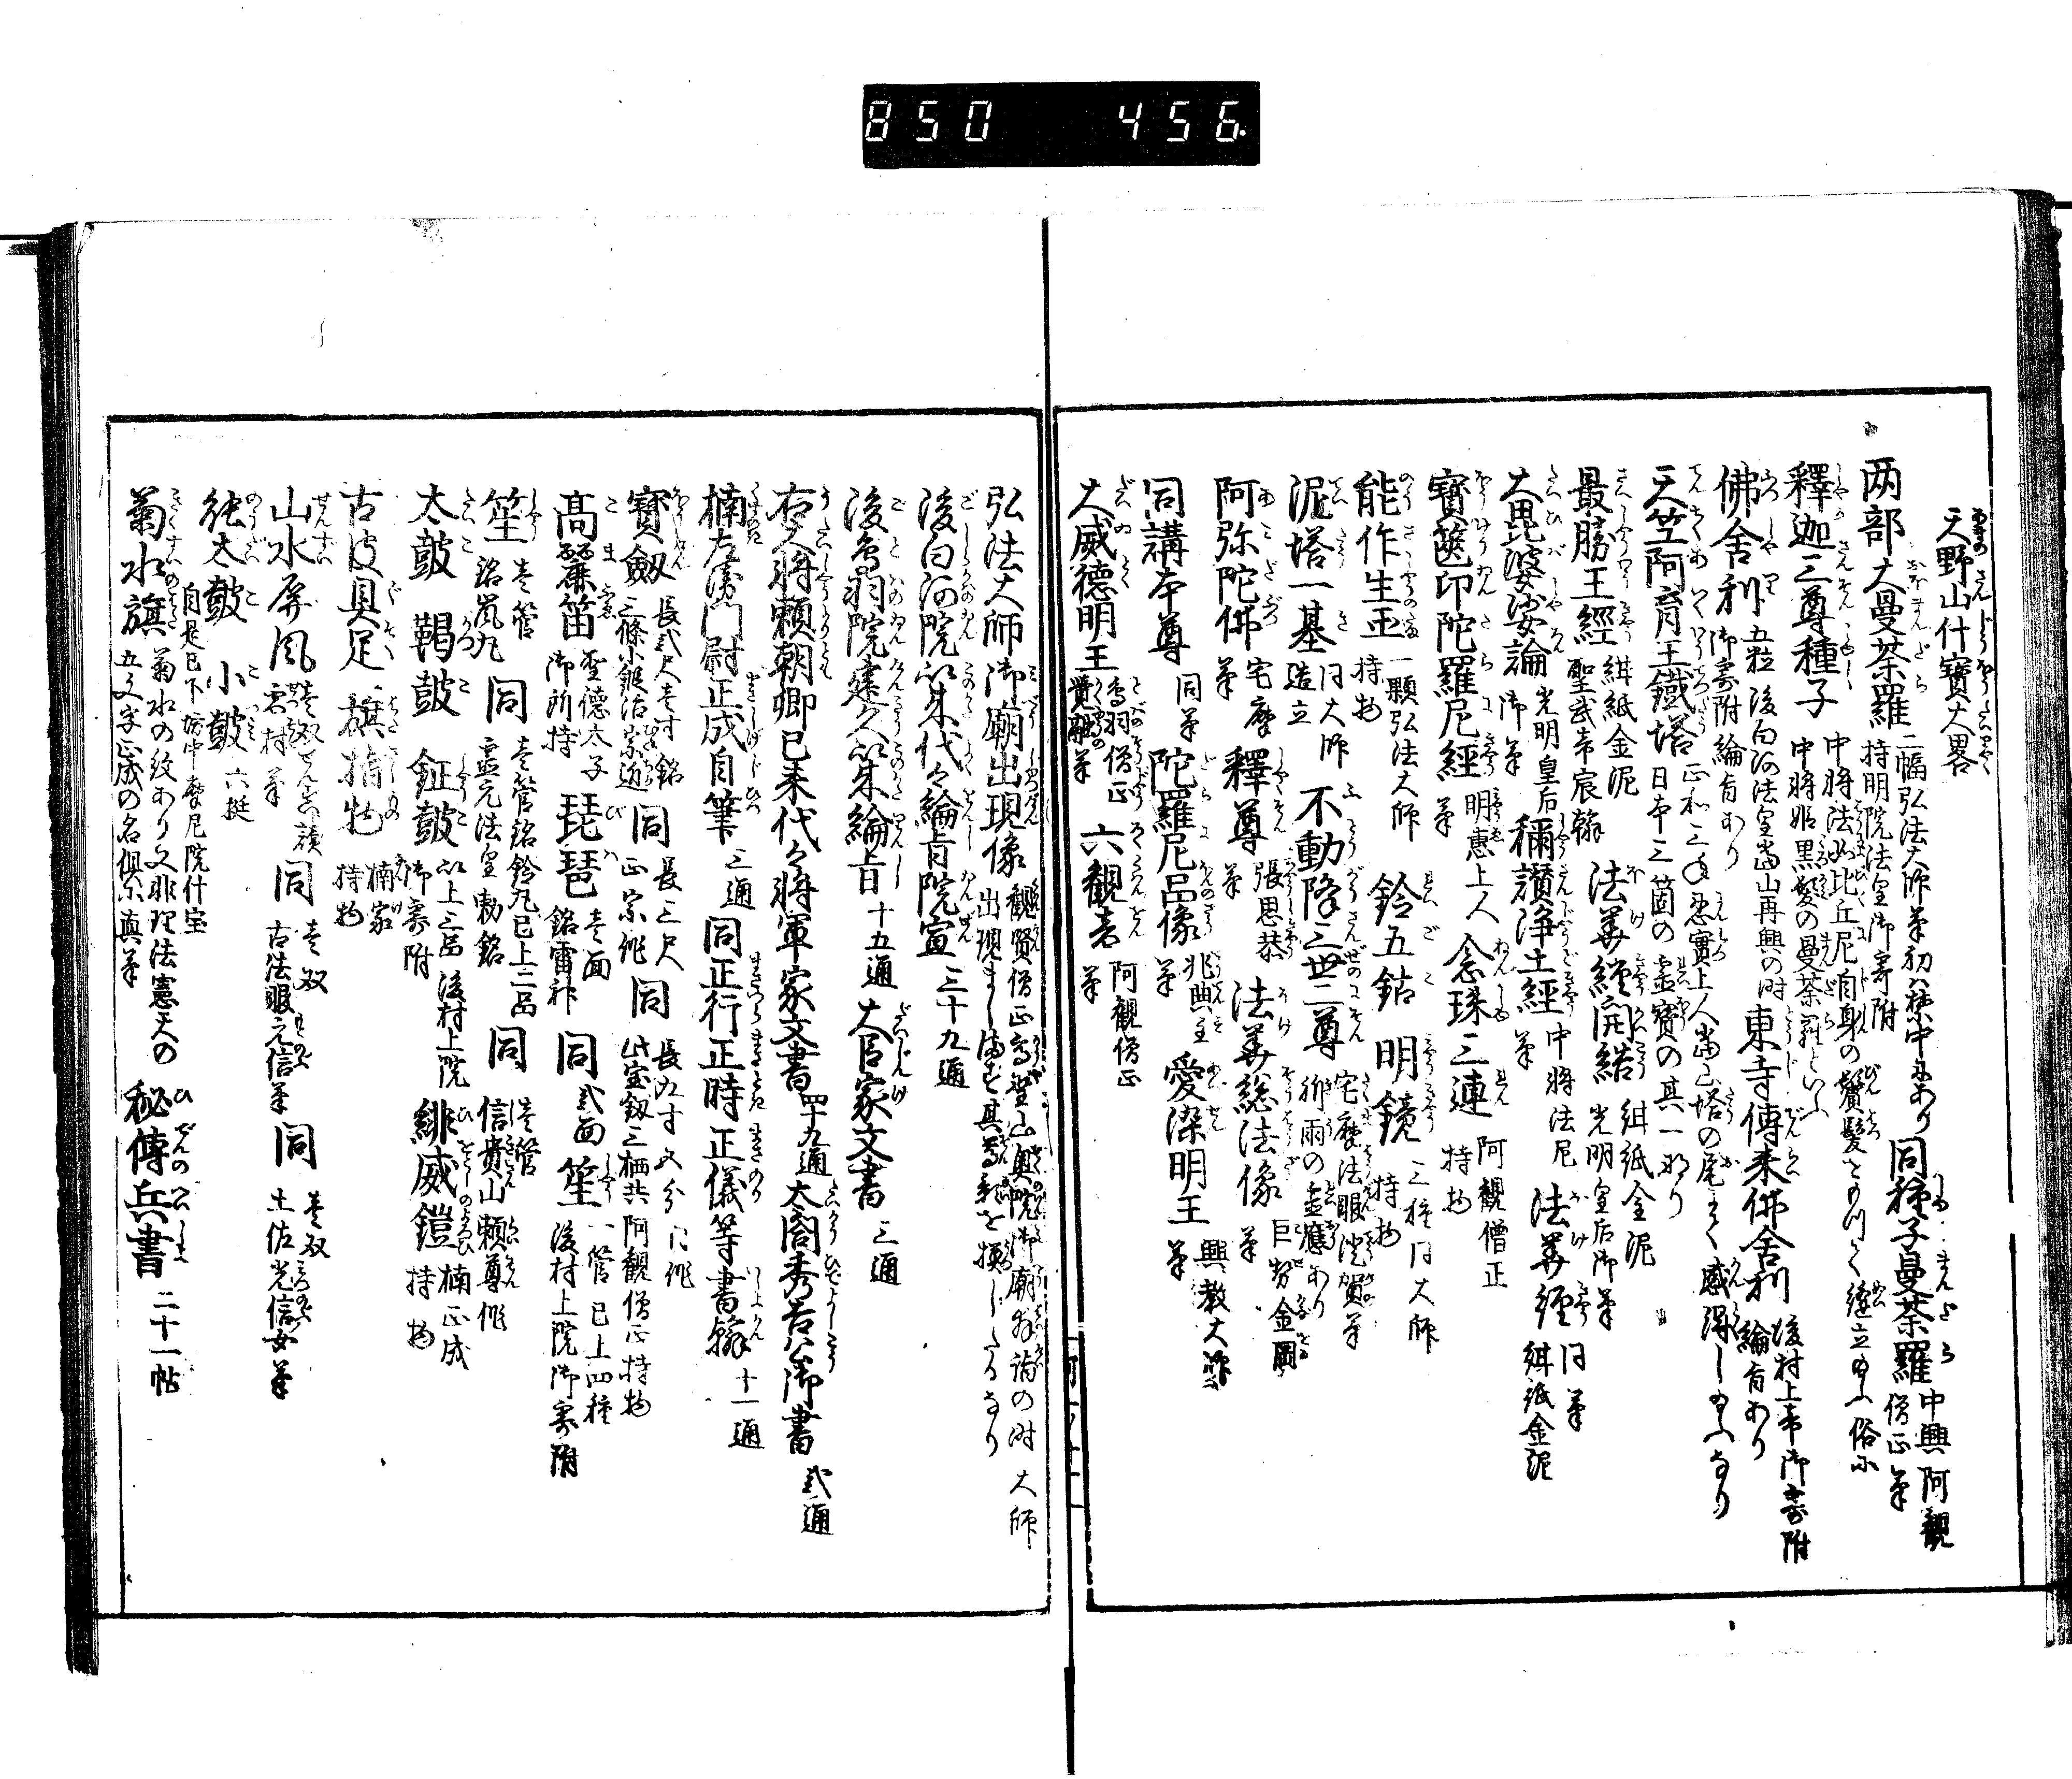 850 456
天野山什寳大畧
两部大曼荼羅 二幅弘法大師筆初ハ禁中にあり 持明院法皇御寄附 同種子曼荼羅 中興阿観僧正筆
釋迦三尊種子 中将法如比丘尼自身の鬢髪をもつて縫立給ふ俗に中将姫黒髪の曼荼羅といふ
佛舎利 五粒後白河法皇當山再興の時御寄附綸旨あり 東寺傳来佛舎利 後村上帝御寄附綸旨あり
天竺阿育王鐵塔 日本三箇の霊寳の其一なり
最勝王經 紺紙金泥聖武帝宸翰 法華經開結 紺紙金泥光明皇后御筆
大毘婆娑論 光明皇后御筆 稱讃浄土經 中将法尼筆 法華經 同筆紺紙金泥
寳篋印陀羅尼經 明恵上人筆 念珠三連 阿観僧正持物
能作生玉 一顆弘法大師持物 鈴五鈷 明鏡 三種同大師持物
泥塔一基 同大師造立 不動降三世二尊 宅磨法眼澄賀筆祈雨の霊應あり
阿弥陀佛 宅磨筆 釋尊 張思恭筆 法華総法像 巨勢金岡筆
同講本尊 同筆 陀羅尼品像 兆典主筆 愛染明王 興教大師筆
大威德明王 鳥羽僧正覺融筆 六観音 阿観僧正筆
弘法大師御廟出現像 観賢僧正高野山奥院御廟拝謁の時大師出現まし満す其尊影を摸したるなり
後白河院以来代々綸旨院宣 三十九通
後鳥羽院建久以来綸旨 十五通 大臣家文書 三通
右大将頼朝卿已来代々将軍家文書 四十九通 太閤秀吉公御書 弐通
楠左衛門尉正成自筆 三通 同正行正時正儀等書翰 十一通
寳劔 長弐尺壱寸銘三條小鍛冶宗近 同 長三尺正宗作 同 長九寸五分同作此宝釼三柄共阿観僧正持物
高麗笛 聖徳太子御所持 琵琶 壱面銘雷神 同 弐面 笙 一管已上四種後村上院御寄附
笙 壱管銘嵐丸 同 壱管銘鈴丸已上二品霊元法皇勅銘 同 壱管信貴山頼尊作
太鼓 鞨鼓 鉦鼓 以上三品後村上院御寄附 緋威鎧 楠正成持物
古皮具足 旗指物 楠家持物
山水屏風 壱双雲村筆 同 壱双古法眼元信筆 同 壱双土佐光信女筆
能太鼓 小鼓 六挺
自是已下坊中摩尼院什宝
菊水旗 菊水の紋あり又非理法憲天の五文字正成の名倶に真筆 秘傳兵書 二十一帖